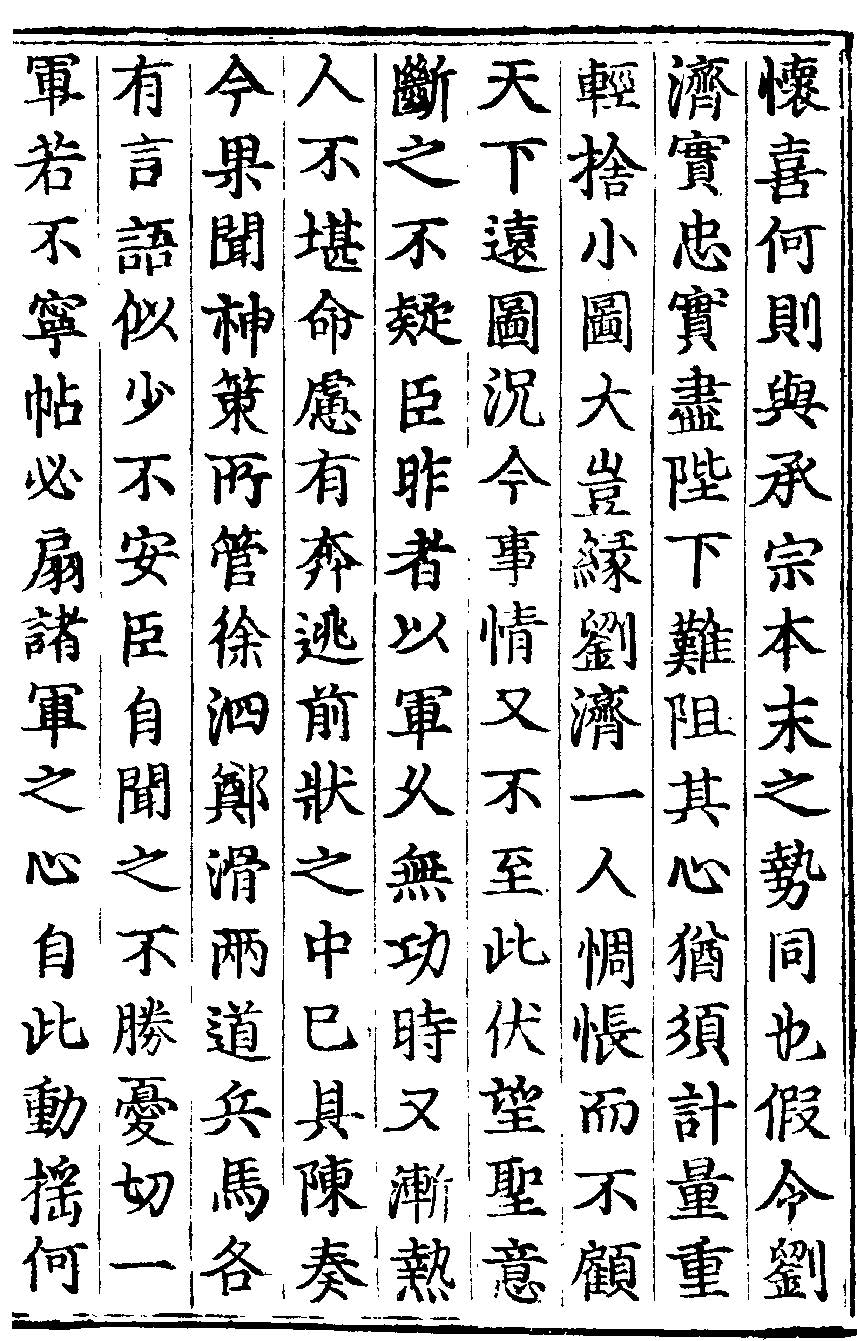 懷喜何則與承宗本末之勢同也假令劉
濟實忠實盡陛下難阻其心猶須計量重
輕捨小圖大豈緣劉濟一人惆悵而不顧
天下遠圖況今事情又不至此伏望聖意
斷之不疑臣昨者以軍久無功時又漸熱
人不堪命慮有奔逃前狀之中已具陳奏
今果聞神策所管徐泗鄭滑兩道兵馬各
有言語似少不安臣自聞之不勝憂切一
軍若不寧帖必扇諸軍之心自此動搖何